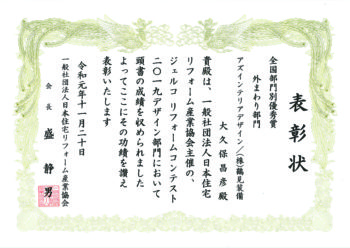 表彰状
全国部門別優秀賞
外まわり部門
アズインテリアデザイン/(株)鶴見装備
大久保昌彦殿
貴殿は、一般社団法人日本住宅
リフォーム産業協会主催の、
ジェルコ リフォームコンテスト
二〇一九デザイン部門において
頭書の成績を収められました
よってここにその功績を讃え
表彰いたします
令和元年十一月二十日
一般社団法人日本住宅リフォーム産業協会
会長 盛 静男